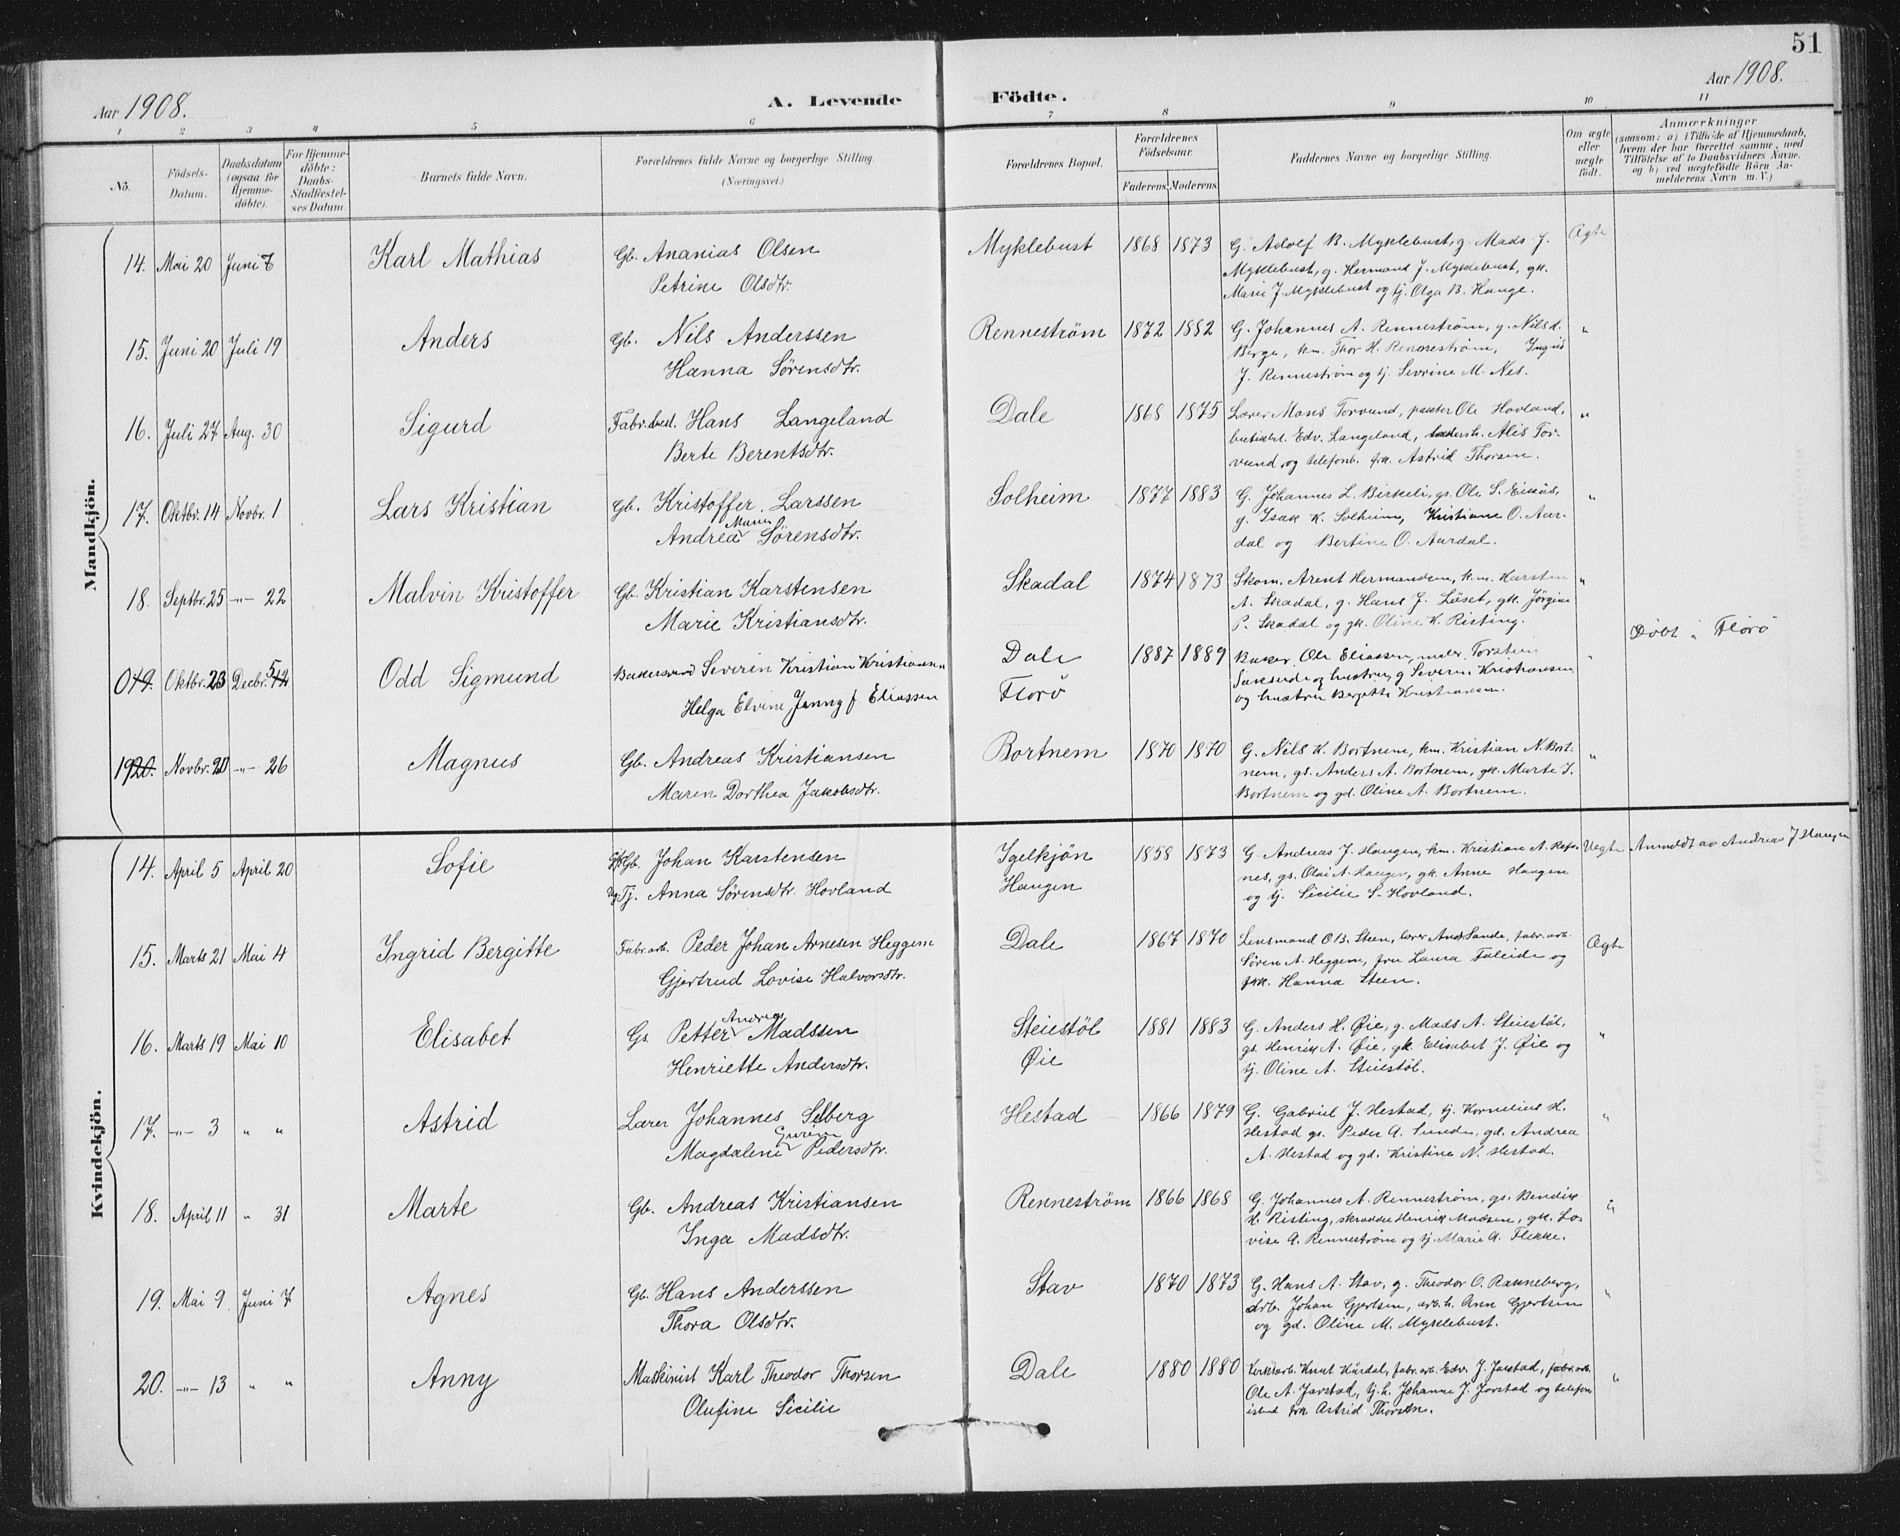 51
Aar 1908. A. Levende Födte. Aar 1908.
1 2 3 4 5 6 7 8 9 10 11
No. Födsels-Datum. Daabsdatum (ogsaa for Hjemme-döbte). For Hjemme-döbte: Daabs-Stadfæstel-ses Datum. Barnets fulde Navn. Forældrenes fulde Navne og borgerlige Stilling. (Næringsvei.) Forældrenes Bopæl. Forældrenes Födselsaar. Faderens. Moderens. Faddernes Navne og borgerlige Stilling. Om ægte eller uægte födt. Anmærkninger (saasom: a) i Tilfælde af Hjemmedaab, hvem der har forrettet samme, med Tilföielse af to Daabsvidners Navne. og b) ved uægtefödte Börn An-melderens Navn m. V.)
Mandkjön.
14. Mai 20 Juni 8 Karl Mathias Gb. Ananias Olsen Myklebust 1868 1873 G. Adolf B. Myklebust, g. Mads J. Ægte
Petrine Olsdtr. Myklebust, g. Hermand J. Myklebust, gk.
Marie J. Myklebust og tj. Olga B. Hauge.
15. Juni 20 Juli 19 Anders Gb. Nils Anderssen Renneström 1872 1882 G. Johannes A. Renneström, g. Nils d. "
Hanna Sörensdtr. Berge, km. Thor H. Renneström, Ingrid
J. Renneström og tj. Sevrine M. Nes.
16. Juli 27 Aug. 30 Sigurd Fabr.best. Hans Langeland Dale 1868 1875 Lærer Mons Torvund, Ole Hovland, "
Berte Berentsdtr. Edv. Langeland, Alis Tor-
vund og telefonb. frk. Astrid Thorsen.
17. Oktbr. 14 Novbr. 1 Lars Kristian Gb. Kristoffer Larssen Solheim 1877 1883 G. Johannes L. Birkeli, gs. Ole S. Eikås, "
Andrea Maria Sörensdtr. g. Isak K. Solheim, Kristiane O. Aar-
dal og Bertine O. Aardal.
18. Septbr. 25 -"- 22 Malvin Kristoffer Gb. Kristian Karstensen Skadal 1874 1873 Skom. Arent Hermandsen, k.m. Karsten "
Marie Kristiansdtr. A. Skadal, g. Hans J. Löset, gk. Jörgine
P. Skadal og gk. Oline K. Risting.
019. Oktbr. 23 Decbr. 5 Odd Sigmund Bakersvend Severin Kristian Kristiansen Dale 1887 1889 Baker Ole Eliassen, Torstein " Döbt i Florö
Helga Elvine Jenny f. Eliassen Florö og hustru, g Severin Kristiansen
og hustru Bergitte Kristiansen.
19 20. Novbr. 20 -"- 26 Magnus Gb. Andreas Kristiansen Bortnem 1870 1870 G. Nils K. Bortnem, km. Kristian N. Bort- "
Maren Dorthea Jakobsdtr. nem, gs. Anders A. Bortnem, gk. Marte I.
Bortnem og gd. Oline A. Bortnem.
Kvindekjön.
14. April 5 April 20 Sofie Gb. Johan Karstensen Igelkjön 1858 1873 G. Andreas J. Haugen, km. Kristian A. Refs- Uegte Anmeldt av Andreas J Haugen
og Tj. Anna Sörensdtr. Hovland Haugen nes, gs. Olai A. Haugen, gk. Anne Haugen
og tj. Sicilie S. Hovland.
15. Marts 21 Mai 4 Ingrid Bergitte Fabr.arb. Peder Johan Arnesen Heggem Dale 1867 1870 Lensmand O B. Steen, lærer And. Sande, fabr. arb. Ægte
Gjertrud Lovise Halvorsdtr. Sören A. Heggem, fru Laura Faleide og
frk. Hanna Steen.
16. Marts 19 Mai 10 Elisabet Gs. Petter Andreas Madssen Steiestöl 1881 1883 G. Anders H. Öie, g. Mads A. Steiestöl, "
Henriette Andersdtr. Öie gs. Henrik A. Öie, gk Elisabet J. Öie og
tj. Oline A. Steiestöl.
17. -"- 3 " " Astrid Lærer Johannes Selberg Hestad 1866 1879 G. Gabriel J. Hestad, tj. Kornelius H. "
Magdalene Pedersdtr. Hestad gs. Peder A. Sunde, gd. Andrea
A. Hestad og gd. Kristine N. Hestad.
18. April 11 " 31 Marte Gb. Andreas Kristiansen Renneström 1866 1868 G. Johannes A. Renneström, gs. Bendik "
Inga Madsdtr. H. Risting, skrædder Henrik Madsen, gk. Lo-
vise A. Renneström og tj. Marie A. Flekke.
19. Mai 9 Juni 7 Agnes Gb. Hans Anderssen Stav 1870 1873 G. Hans A. Stav, g. Theodor O. Ramneberg, "
Thora Olsdtr. arb. Johan Gjertsen, arb.h. Ann Gjertsen
og gd. Oline M. Myklebust.
20. -"- 13 " " Anny Maskinist Karl Theodor Thorsen Dale 1880 1880 Knut Hårdal, fabr.arb. Edv. J. Jarstad, fabr.arb. "
Olufine Sicilie Ole A. Jarstad, tj.h. Johanne J. Jarstad og telefon
frk Astrid Thorsen.